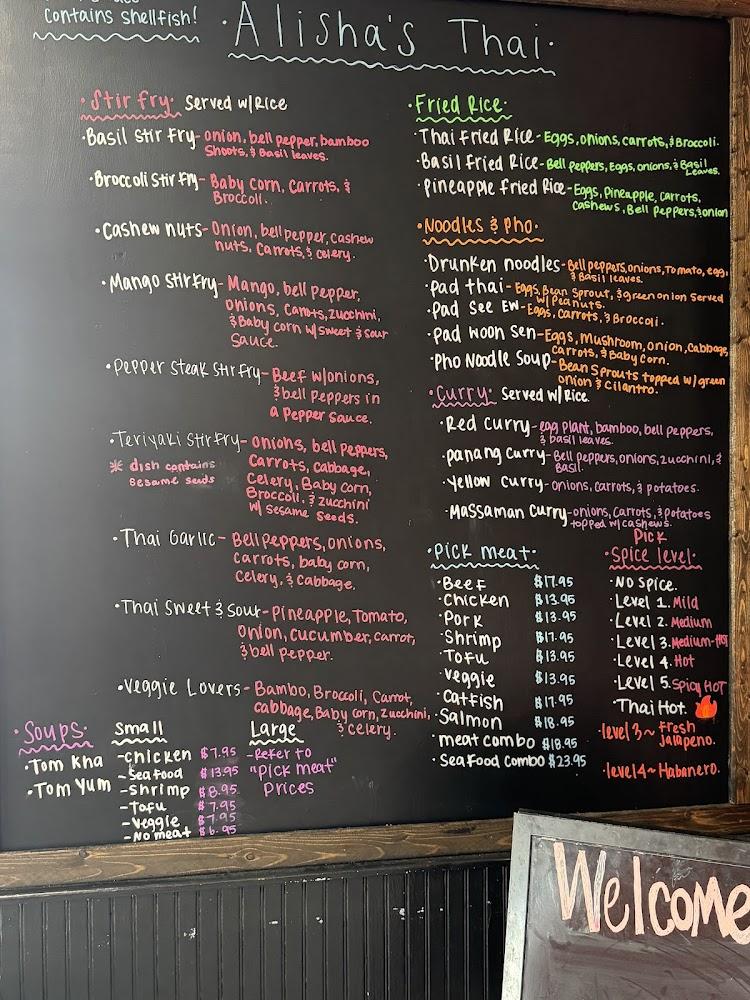 contains shellfish!
·Alisha's Thai·
·Stir fry· Served w/Rice
·Basil Stir Fry- onion, bell pepper, bamboo
Shoots, & Basil leaves.
·Broccoli Stir Fry- Baby Corn, Carrots, &
Broccoli.
·Cashew nuts- Onion, bell pepper, cashew
nuts, Carrots, & celery.
·Mango Stir Fry- Mango, bell pepper,
onions, Carrots, zucchini,
& Baby corn w/ sweet & sour
Sauce.
·Pepper Steak Stir Fry- Beef w/onions,
& bell peppers in
a Pepper Sauce.
·Teriyaki Stir Fry- onions, bell peppers,
Carrots, cabbage,
Celery, Baby corn,
Broccoli, & zucchini
w/ Sesame Seeds.
* dish contains
sesame seeds
·Thai Garlic- Bell peppers, onions,
Carrots, baby corn,
Celery, & Cabbage.
·Thai Sweet & Sour- Pineapple, Tomato,
Onion, cucumber, carrot,
& bell pepper.
·Veggie Lovers- Bamboo, Broccoli, Carrot,
cabbage, Baby corn, zucchini,
& celery.
·Fried Rice·
·Thai Fried Rice- Eggs, onions, carrots, & Broccoli.
·Basil Fried Rice- Bell peppers, Eggs, onions, & Basil
Leaves.
·Pineapple Fried Rice- Eggs, Pineapple, carrots,
cashews, Bell peppers, & onion
·Noodles & Pho·
·Drunken noodles- Bell peppers, onions, Tomato, egg,
& Basil leaves.
·Pad thai- Eggs, Bean Sprout, & green onion Served
w/ Peanuts.
·Pad See Ew- Eggs, Carrots, & Broccoli.
·Pad Woon Sen- Eggs, Mushroom, onion, Cabbage,
Carrots, & Baby Corn.
·Pho Noodle Soup- Bean Sprouts topped w/ green
onion & Cilantro.
·Curry· Served w/Rice
·Red Curry- egg plant, bamboo, bell peppers,
& basil leaves.
·Panang Curry- Bell peppers, onions, zucchini, &
Basil.
·Yellow Curry- onions, carrots, & potatoes.
·Massaman Curry- onions, Carrots, & potatoes
topped w/ cashews.
·Pick meat·
·Beef $17.95
·Chicken $13.95
·Pork $13.95
·Shrimp $17.95
·Tofu $13.95
·Veggie $13.95
·Catfish $17.95
·Salmon $18.95
·meat combo $18.95
·Seafood Combo $23.95
Pick
·Spice level·
·No Spice.
·Level 1. Mild
·Level 2. Medium
·Level 3. Medium-Hot
·Level 4. Hot
·Level 5. Spicy HOT
·Thai Hot.
·level 3~ Fresh
Jalapeno.
·level 4~ Habanero.
·Soups·
·Tom Kha
·Tom Yum
Small
-Chicken $7.95
-Seafood $13.95
-Shrimp $8.95
-Tofu $7.95
-Veggie $7.95
-No meat $6.95
Large
-Refer to
"Pick meat"
Prices
Welcome